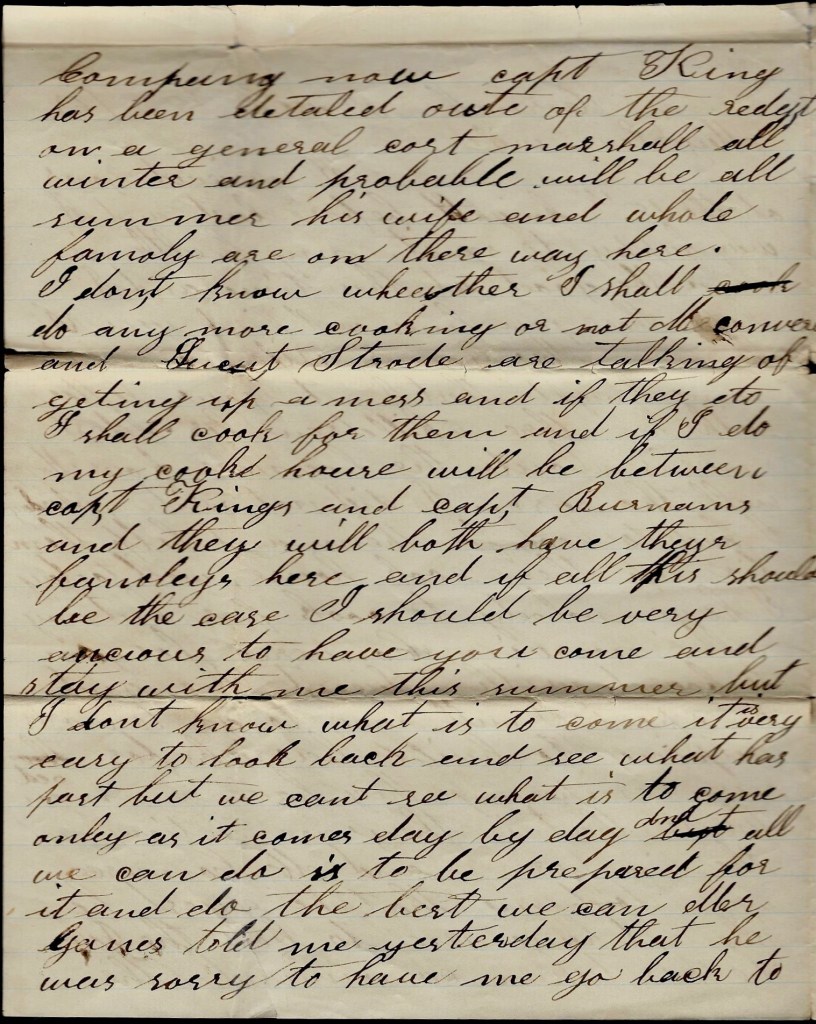 Company now capt King
has been detaled oute of the redgt
on a general cort marshall all
winter and probable will be all
summer his wife and whole
famoly are on there way here.
I dont know wheather I shall cook
do any more cooking or not Mr
and Lieut Strode are talking of
geting up a mess and if they do
I shall cook for them and if I do
my cook house will be between
capt Kings and capt Burnams
and they will both have theyr
famoleys here and if all this should
be the case I should be very
ancious to have you come and
stay with me this summer but
I dont know what is to come it is very
easy to look back and see what has
past but we cant see what is to come
onley as it comes day by day and but all
we can do is to be prepared for
it and do the best we can Mr
told me yesterday that he
was sorry to have me go back to